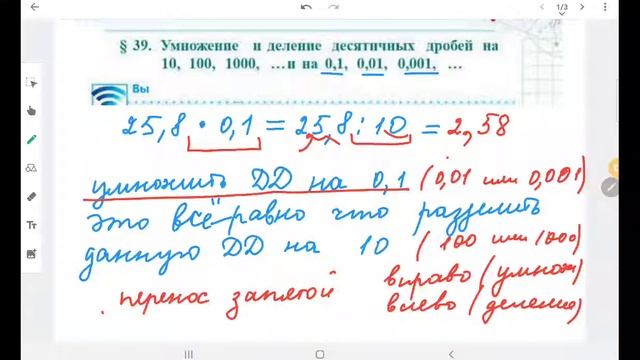 1/3
§ 39. Умножение и деление десятичных дробей на
10, 100, 1000, ...и на 0,1, 0,01, 0,001, ...
Вы
25,8 • 0,1 = 25,8 : 10 = 2,58
умножить DD на 0,1 (0,01 или 0,001)
это всё равно что разделить
данную DD на 10 (100 или 1000)
перенос запятой вправо (умнож)
влево (деление)
Tт